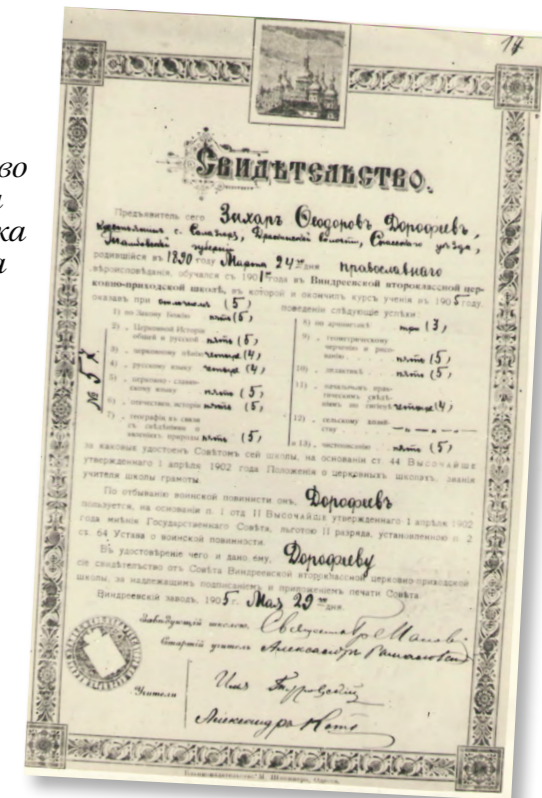 во
ка
17
Свидѣтельство.
Предъявитель сего Захаръ Ѳеодоровъ Дорофѣевъ,
крестьянинъ с. Спасскаго уѣзда,
Тамбовской губерніи
родившійся въ 1890 году Марта 24 дня православнаго
вѣроисповѣданія, обучался съ 1901 года въ Виндреевской второклассной цер-
ковно-приходской школѣ, въ которой и окончилъ курсъ ученія въ 1905 году,
оказавъ при отличномъ (5) поведеніи слѣдующіе успѣхи:
№ 57.
1) по Закону Божію пять (5)
2) „ Церковной Исторіи
общей и русской пять (5)
3) „ церковному пѣнію четыре (4)
4) „ русскому языку четыре (4)
5) „ церковно-славян-
скому языку пять (5)
6) „ отечествен. исторіи пять (5)
7) „ географіи въ связи
съ свѣдѣніями о
явленіяхъ природы пять (5)
8) по ариѳметикѣ три (3)
9) „ геометрическому
черченію и рисо-
ванію пять (5)
10) „ дидактикѣ пять (5)
11) „ начальнымъ прак-
тическимъ свѣдѣ-
ніямъ по гигіенѣ четыре (4)
12) „ сельскому хозяй-
ству
и 13) „ чистописанію пять (5)
за каковые удостоенъ Совѣтомъ сей школы, на основаніи ст. 44 Высочайше
утвержденнаго 1 апрѣля 1902 года Положенія о церковныхъ школахъ, званія
учителя школы грамоты.
По отбыванію воинской повинности онъ, Дорофѣевъ
пользуется, на основаніи п. 1 отд. II Высочайше утвержденнаго 1 апрѣля 1902
года мнѣнія Государственнаго Совѣта, льготою II разряда, установленною п. 2
ст. 64 Устава о воинской повинности.
Въ удостовѣреніе чего и дано ему, Дорофѣеву
сіе свидѣтельство отъ Совѣта Виндреевской второклассной церковно-приходской
школы, за надлежащимъ подписаніемъ и приложеніемъ печати Совѣта
Виндреевскій заводъ, 1905 г. Мая 29 дня.
Завѣдующій школою, Священникъ
Старшій учитель Александръ
Учителя
Александръ